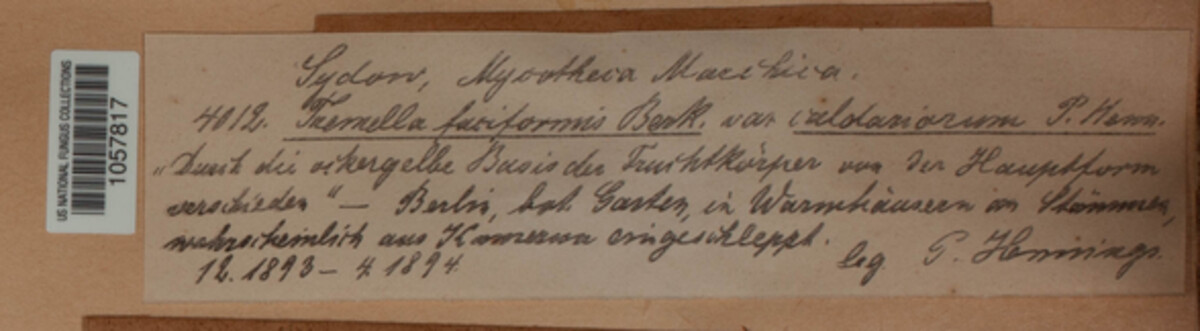 US NATIONAL FUNGUS COLLECTIONS
1057817
Sydow, Mycotheca Marchica.
4012. Tremella fuciformis Berk. var. caldariorum P. Henn.
„Durch die ockergelbe Basis der Fruchtkörper von der Hauptform
verschieden“ — Berlin, bot. Garten, in Warmhäusern an Stämmen,
wahrscheinlich aus Kamerun eingeschleppt.
12. 1893 – 4. 1894. leg. P. Hennings.